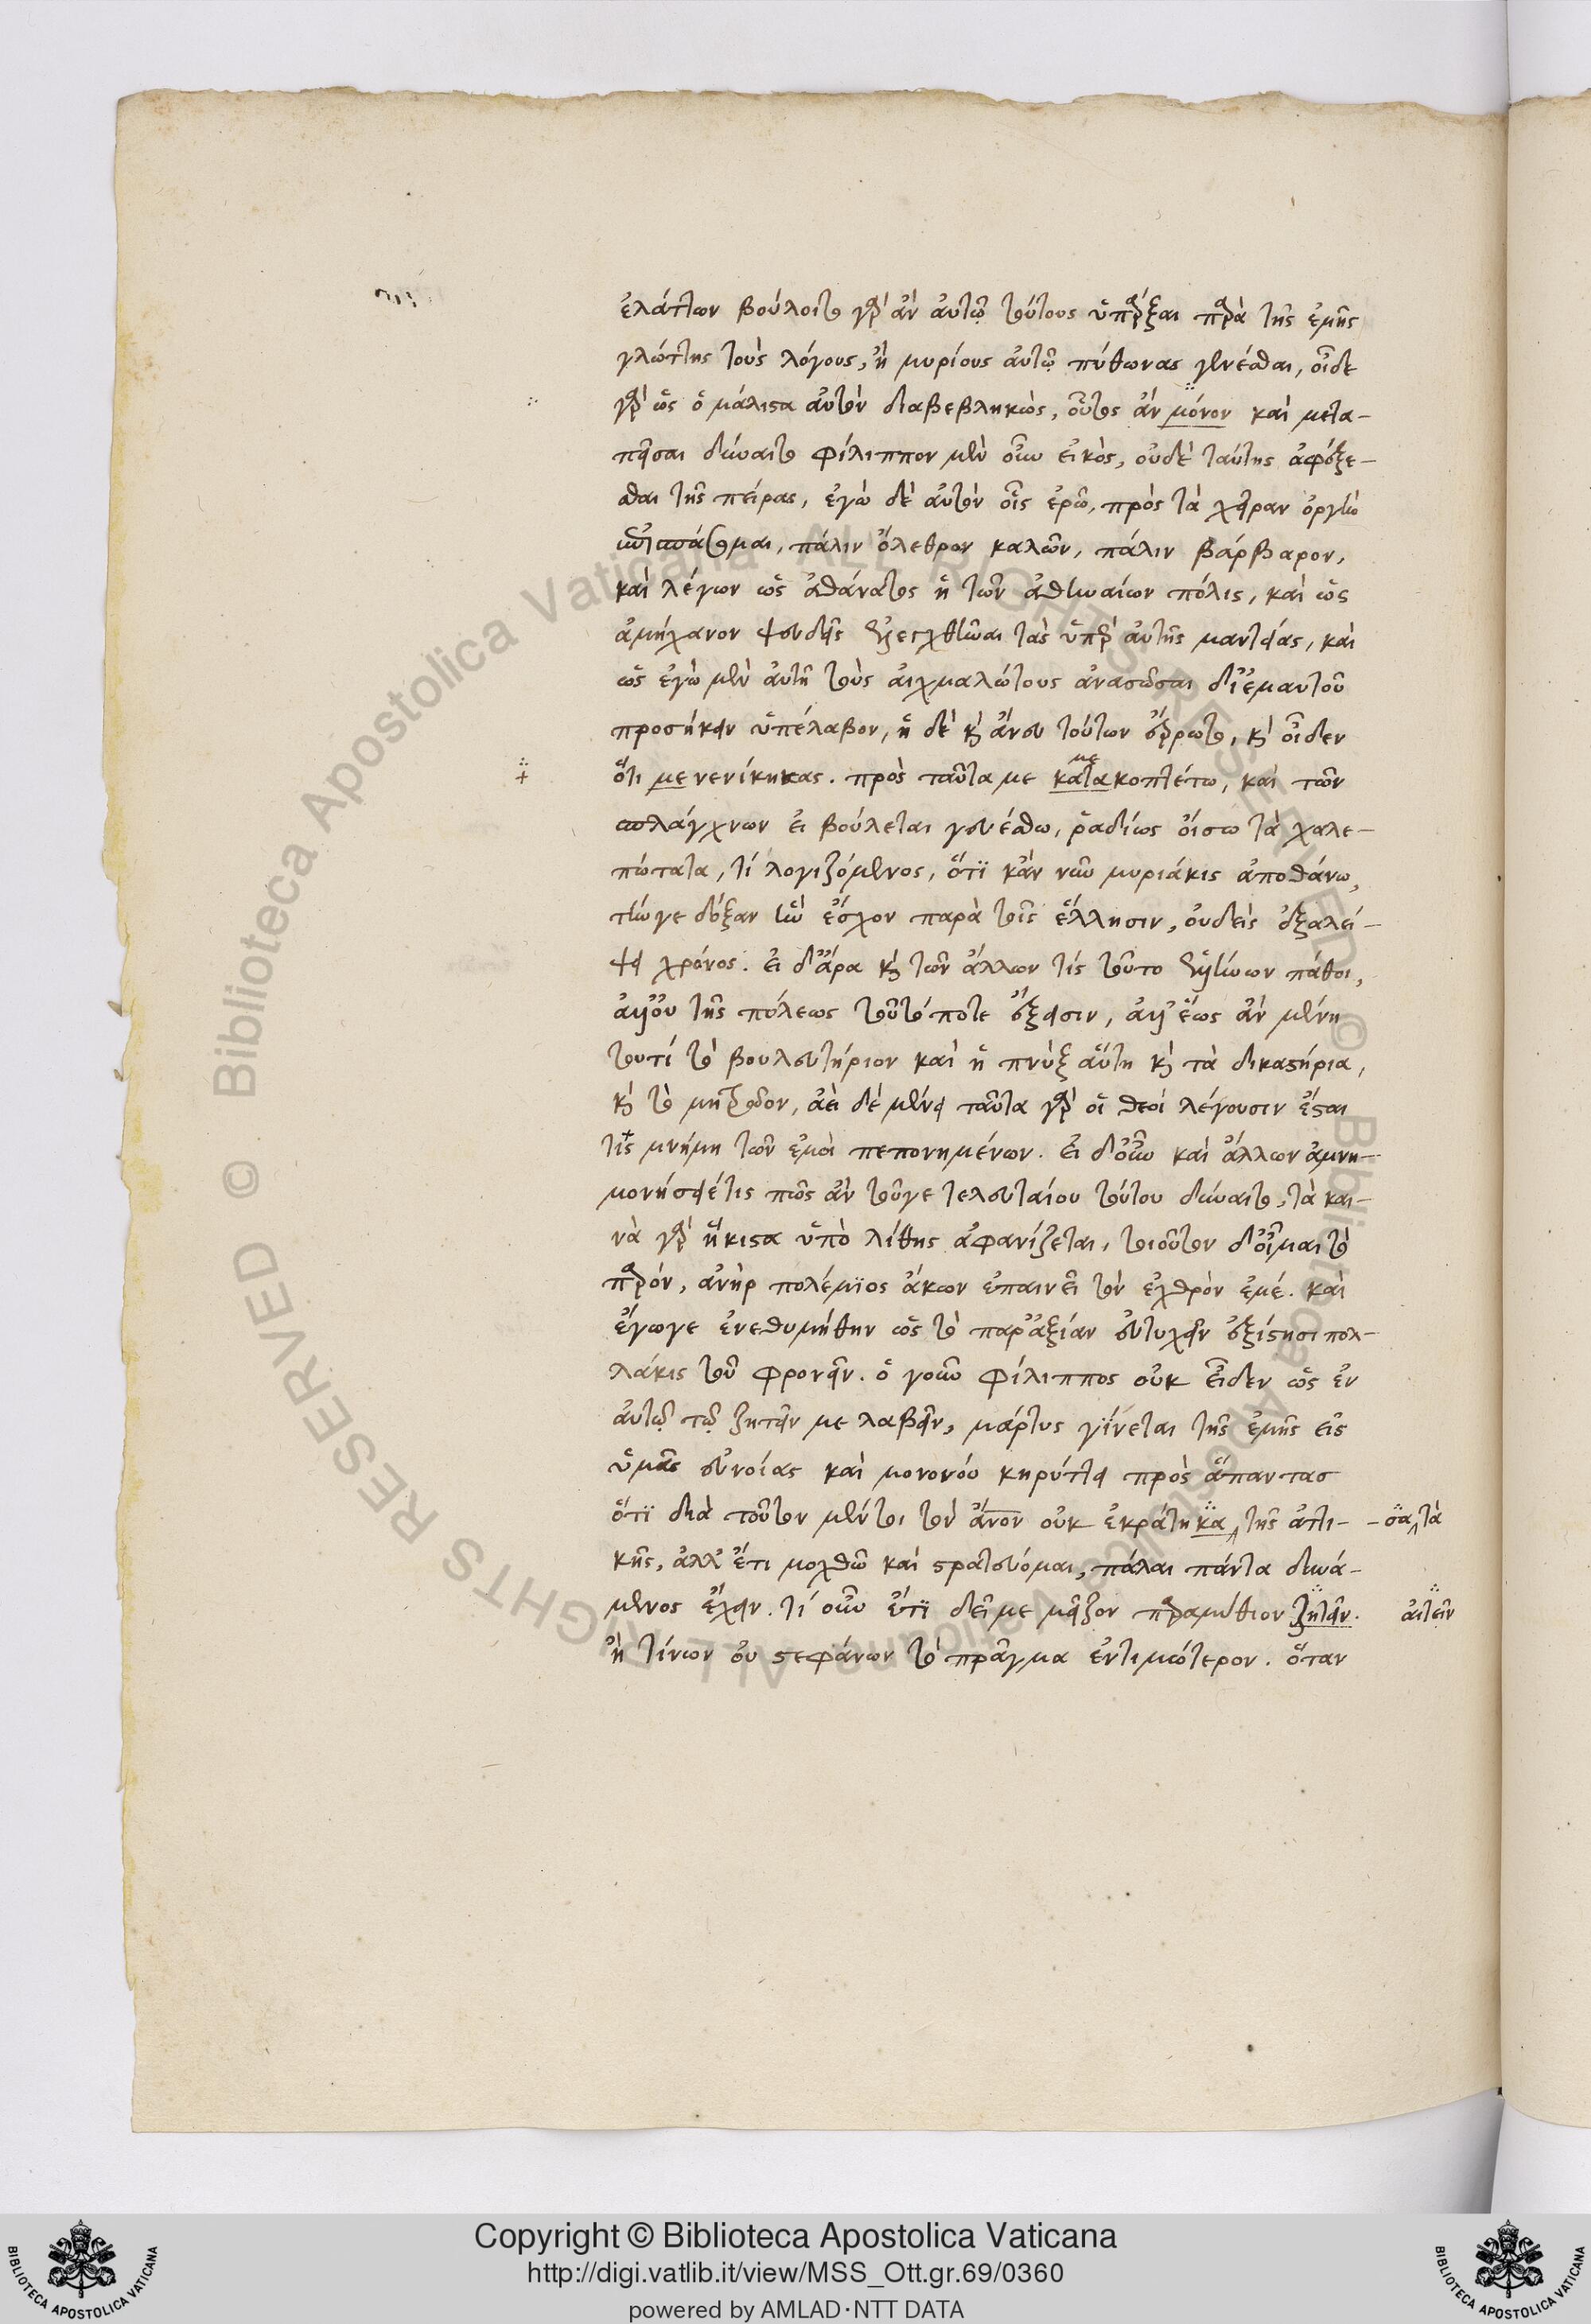 ἐλάττων βούλοιτο γὰρ ἂν αὐτῷ τούτους ὑπάρξαι παρὰ τῆς ἐμῆς
γλώττης τοὺς λόγους, ἢ μυρίους αὐτῷ πύθωνας γενέσθαι, οἶδε
γὰρ ὡς ὁ μάλιστα αὐτὸν διαβεβληκὼς, οὗτος ἂν μόνον καὶ μετα-
πεῖσαι δύναιτο φίλιππον μὲν οὖν εἰκὸς, οὐδὲ ταύτης ἀφέξε-
σθαι τῆς πείρας, ἐγὼ δὲ αὐτὸν οἷς ἐρῶ, πρὸς τὰ χείραν ὀργὴν
πάλιν ὄλεθρον καλῶν, πάλιν βάρβαρον,
καὶ λέγων ὡς ἀθάνατος ἡ τῶν ἀθηναίων πόλις, καὶ ὡς
ἀμήχανον ψευδεῖς ἐξελεγχθῆναι τὰς ὑπὲρ αὐτῆς μαντείας, καὶ
ὡς ἐγὼ μὲν αὐτῇ τοὺς αἰχμαλώτους ἀνασῶσαι δι' ἐμαυτοῦ
προσήκειν ὑπέλαβον, ἡ δὲ καὶ ἄνευ τούτων ἔρρωτο, καὶ οἶδεν
ὅτι με νενίκηκας. πρὸς ταῦτα με κατακοπτέτω, καὶ τῶν
με
σπλάγχνων εἰ βούλεται γευέσθω, ῥαδίως οἴσω τὰ χαλε-
πώτατα, τί λογιζόμενος, ὅτι κἂν νῦν μυριάκις ἀποθάνω,
τήνγε δόξαν ἣν ἔσχον παρὰ τοῖς ἕλλησιν, οὐδεὶς ἐξαλεί-
ψει χρόνος. εἰ δ' ἄρα καὶ τῶν ἄλλων τίς τοῦτο ἐκείνων πάθοι,
τῆς πόλεως τοῦτό ποτε ἕξεισιν, ἕως ἂν μένη
τουτί τὸ βουλευτήριον καὶ ἡ πνὺξ αὕτη καὶ τὰ δικαστήρια,
καὶ τὸ μητρῷον, ἀεὶ δὲ μένει ταῦτα γὰρ οἱ θεοί λέγουσιν ἔσται
τὶς μνήμη τῶν ἐμοὶ πεπονημένων. εἰ δ' οὖν καὶ ἄλλων ἀμνη-
μονήσειέ τις πῶς ἂν τοῦγε τελευταίου τούτου δύναιτο, τὰ και-
νὰ γὰρ ἥκιστα ὑπὸ λίθης ἀφανίζεται, τοιοῦτον δ' οἶμαι τὸ
παρόν, ἀνὴρ πολέμιος ἄκων ἐπαινεῖ τὸν ἐχθρὸν ἐμέ. καὶ
ἔγωγε ἐνεθυμήθην ὡς τὸ παρ' ἀξίαν εὐτυχεῖν ἐξίστησι πολ-
λάκις τοῦ φρονεῖν. ὁ γοῦν φίλιππος οὐκ εἶδεν ὡς ἐν
αὐτῷ τῷ ζητεῖν με λαβεῖν, μάρτυς γίνεται τῆς ἐμῆς εἰς
ὑμᾶς εὐνοίας καὶ μονονού κηρύττει πρὸς ἅπαντας
ὅτι διὰ τοῦτον μέν τοι τὸν ἄνον οὐκ ἐκράτηκα τῆς ἀττι-
-σα τὰ
κῆς, ἀλλ' ἔτι μοχθῶ καὶ στρατεύομαι, πάλαι πάντα δυνά-
μενος ἔχειν. τί οὖν ἔτι δεῖ με μεῖζον παραμύθιον ζητεῖν.
αἰτεῖν
ἢ τίνων οὐ στεφάνων τὸ πρᾶγμα ἐντιμώτερον. ὅταν
Copyright © Biblioteca Apostolica Vaticana
http://digi.vatlib.it/view/MSS_Ott.gr.69/0360
powered by AMLAD·NTT DATA